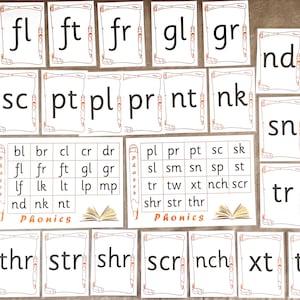 fl ft fr gl gr
nd
sc pt pl pr nt nk
sn
bl br cl cr dr
fl fr ft gl gr
lf lk lt lp mp
nd nk nt
Phonics
pl pr pt sc sk
sl sm sn sp st
tr tw xt nch scr
shr str thr
Phonics
tr
thr str shr scr nch xt